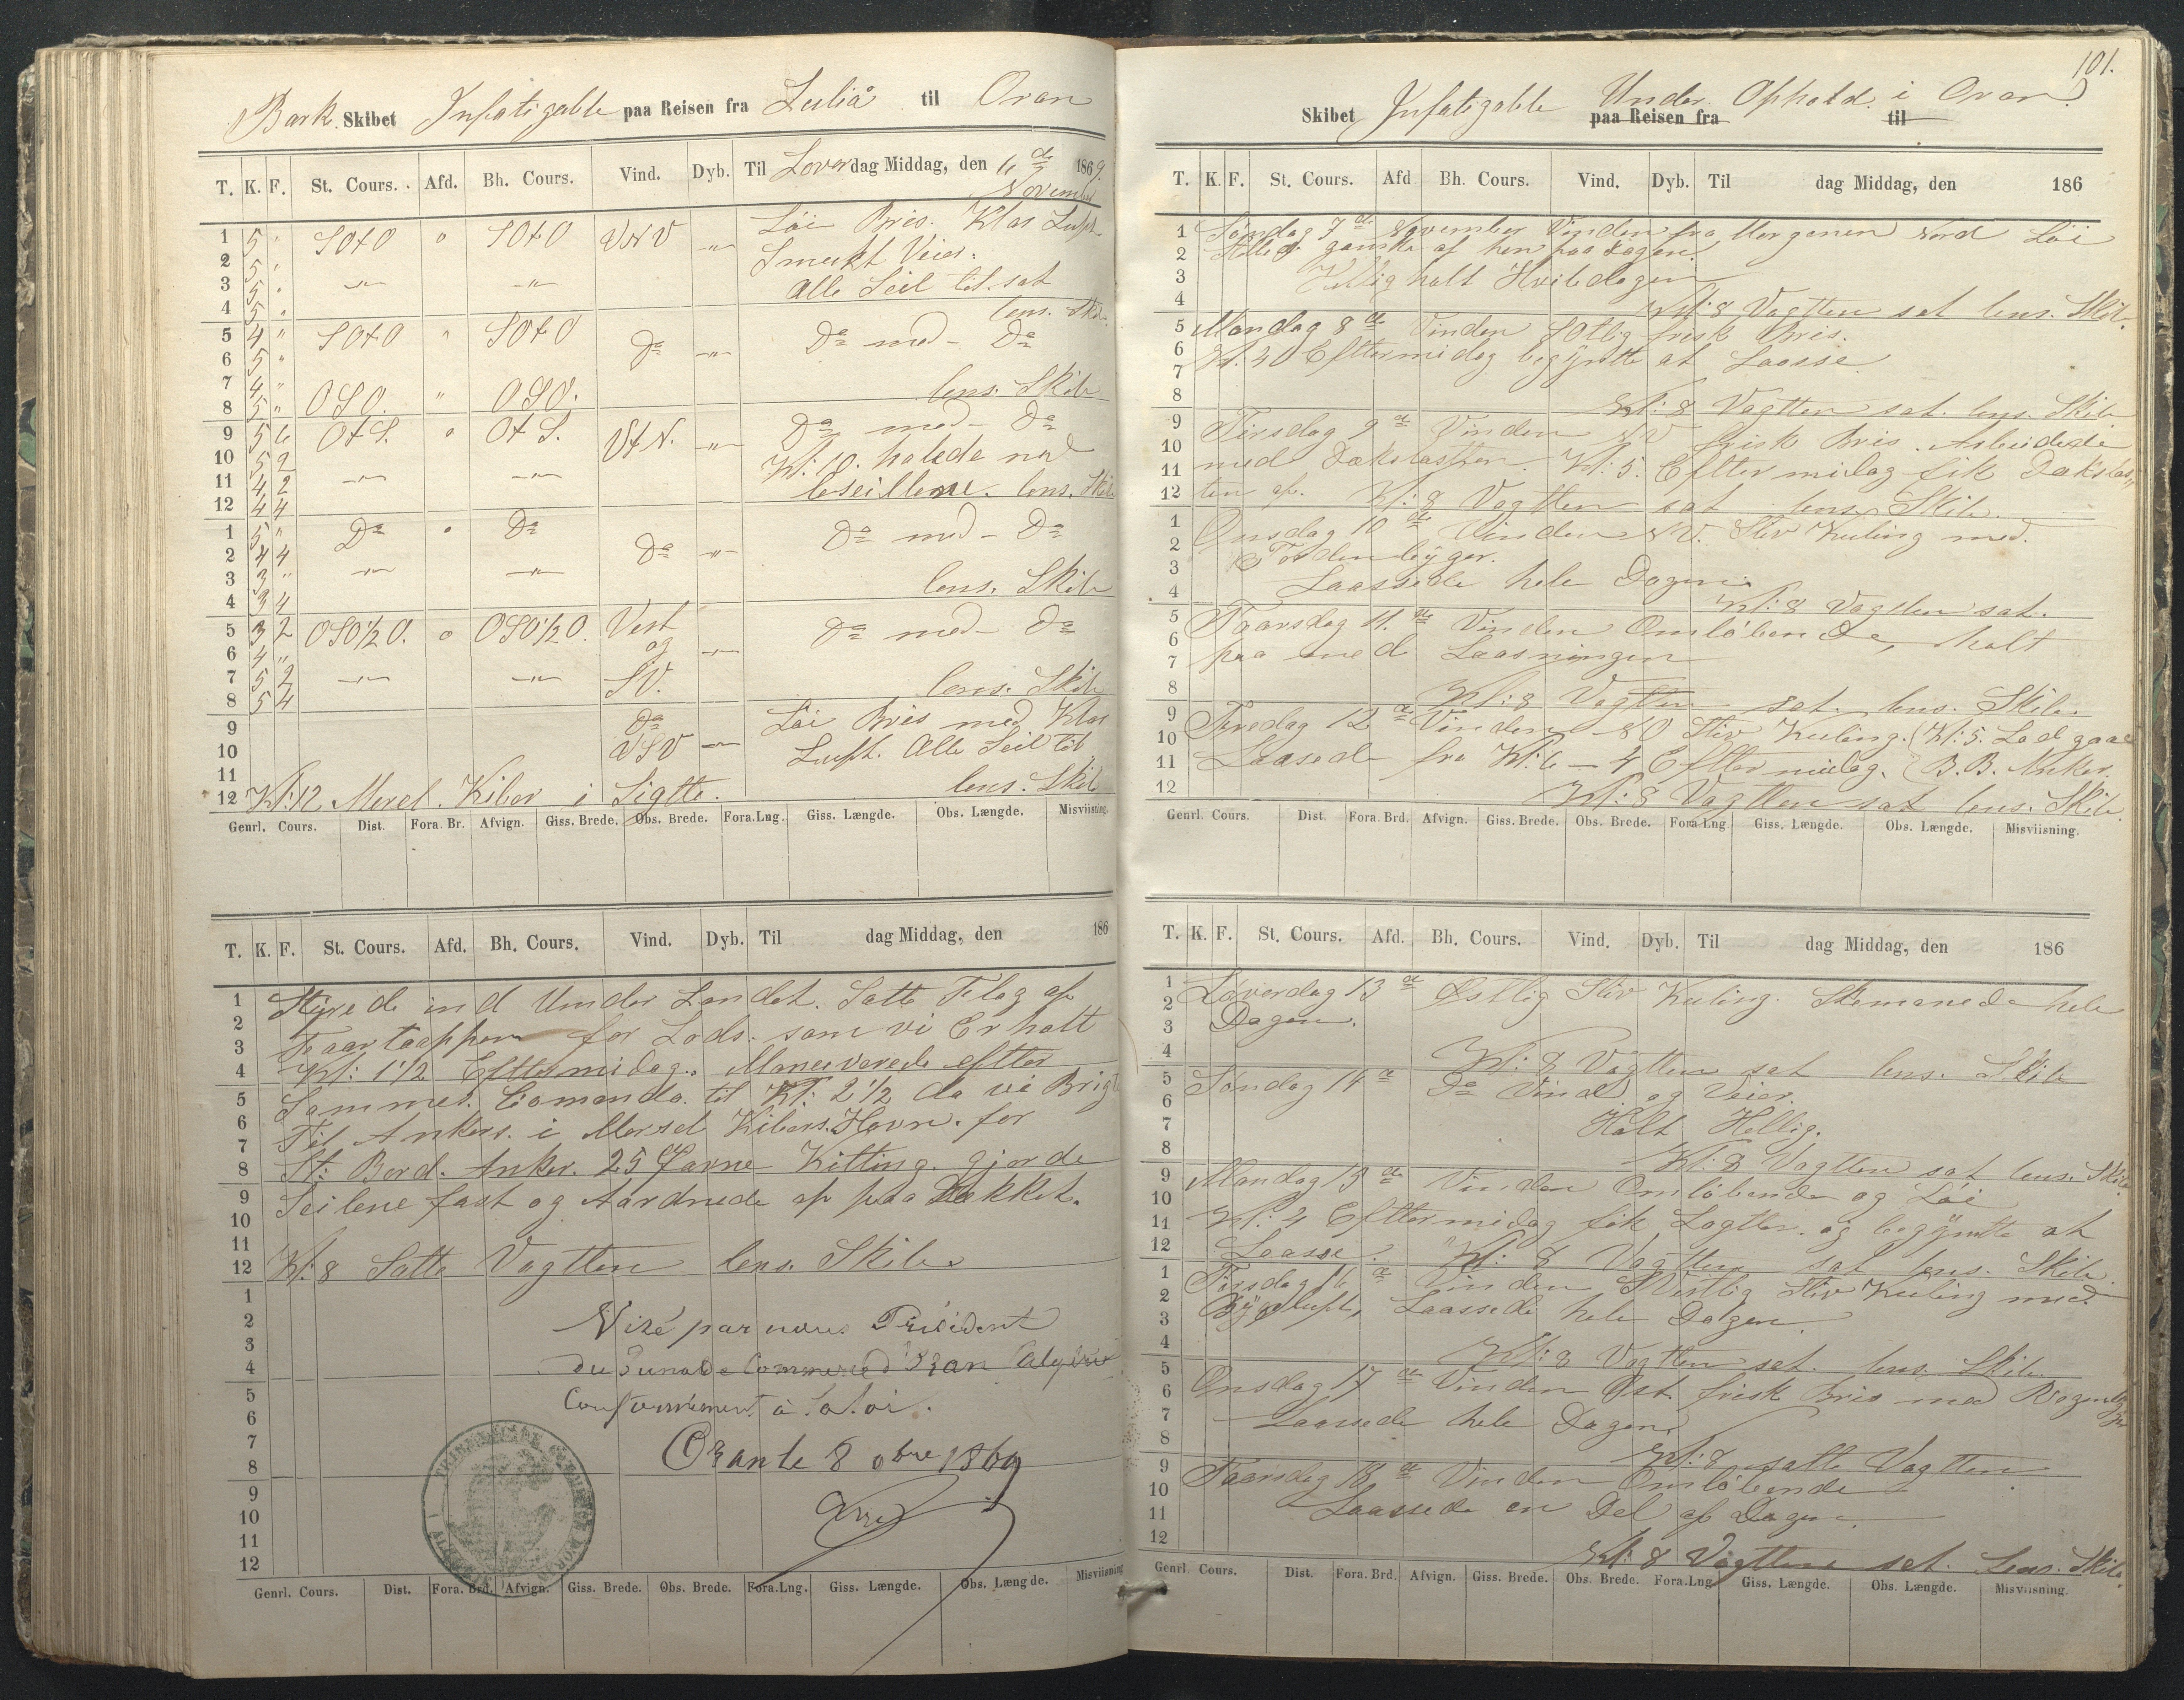 Bark Skibet Infatigable paa Reisen fra Luliå til Oran
T. K. F. St. Cours. Afd. Bh. Cours. Vind. Dyb. Til Loverdag Middag, den 6de November 1869
1 5 " SOtO o SOtO VNV -"- Löi Bris. Klar Luft
2 5 " Smukt Veier.
3 5 " -"- -"- Alle Seil til sat
4 5 " lens. Skib.
5 4 " SOtO " SOtO Do -"- Do med - Do
6 5 "
7 4 "
8 5 " OSO. " OSO. lens. Skib
9 5 6 OtS. o OtS. VtN. -"- Do med - Do
10 5 2 Kl: 10. halede ned
11 4 2 -"- -"- leseillene. lens. Skib
12 4 4
1 5 " Do o Do Do med - Do
2 4 4 Do -"-
3 3 " -"- -"-
4 3 4 lens. Skib
5 3 2 OSO1/2O. o OSO1/2O Vest Do med - Do
6 4 " og -"-
7 5 2 -"- -"- SV.
8 5 4 lens. Skib
9 Do Löi Bris med Klar
10 VSV -"- Luft. Alle Seil til
11 lens. Skib
12 Kl: 12 Mersel Kiber i Sigtte.
Genrl. Cours. Dist. Fora. Br. Afvign. Giss. Brede. Obs. Brede. Fora.Lng. Giss. Længde. Obs. Længde. Misviisning.
T. K. F. St. Cours. Afd. Bh. Cours. Vind. Dyb. Til dag Middag, den 186
1 Styrede ind Under Landet. Satte Flag af
2 Faartoppen for Lods. som vi Erholt
3
4 Kl: 1 1/2 Eftermidag. Maneuverede eftter
5 Sammes. Comando. til Kl: 2 1/2 da vi Brigte
6 Til Ankers. i Mersel Kibers. Havn. for
7
8 St: Bord. Anker. 25 Favne Kitting. gjorde
9 Seilene fast og Aardnede op paa Dækket.
10
11
12 Kl: 8 Satte Vagtten lens. Skib.
1
2 Visé par nous Président
3
4 du Tunal de Commerce d'Oran (Algérie
5
6 Conformément à la loi.
7 Oran le 8 obre 1869
8
9
10
11
12
Genrl. Cours. Dist. Fora. Brd. Afvign. Giss. Brede. Obs. Brede. Fora.Lng. Giss. Længde. Obs. Længde. Misviisning
101.
Skibet Infatigable paa Reisen fra Under Ophold i Oran til
T. K. F. St. Cours. Afd Bh. Cours. Vind. Dyb. Til dag Middag, den 186
1 Søndag 7de November Vinden fra Morgenen Nord Löi
2 Stilled ganske af hen paa Dagen.
3 Hellig holt Hviledagen
4 Kl: 8 Vagtten sat lens. Skib.
5 Mandag 8de Vinden SOtlig frisk Bris.
6 Kl: 4 Eftermidag begÿntte at Laasse
7
8 Kl: 8 Vagtten sat. lens. Skib
9 Tirsdag 9de Vinden NV frisk Bris. Arbeidede
10 med Dækslastten. Kl: 5. Eftermidag fik Dækslas,,
11
12 ten af. Kl: 8 Vagtten sat lens. Skib.
1 Onsdag 10de Vinden NV. Stiv Kuling med.
2 Tordenbÿger.
3 Laassede hele Dagen.
4 Kl: 8 Vagtten sat.
5 Taarsdag 11.de Vinden Omlöbende, holt
6 paa med Laasningen
7
8 Kl: 8 Vagtten sat. lens. Skib.
9 Fredag 12de Vinden NO Stiv Kuling. (Kl: 5. Lod gaae
10 Laasede fra Kl: 6 - 4 Eftermidag. (B.B. Anker.
11
12 Kl: 8 Vagtten sat lens. Skib.
Genrl. Cours. Dist. Fora. Brd. Afvign. Giss. Brede. Obs. Brede. Fora Lng Giss. Længde. Obs. Længde. Misviisning.
T. K. F. St. Cours. Afd. Bh. Cours. Vind. Dyb. Til dag Middag, den 186
1 Løverdag 13de Østlig Stiv Kuling. Skemanede hele
2 Dagen.
3
4 Kl: 8 Vagtten sat lens. Skib
5 Søndag 14de Do Vind og Veier.
6
7 Holt Hellig.
8 Kl: 8 Vagtten sat lens. Skib.
9 Mandag 15de Vinden Omlöbende og Löi
10 Kl: 4 Eftermidag fik Lagtter. og begÿntte at
11
12 Laasse. Kl: 8 Vagtten sat lens. Skib.
1 Tirsdag 16de Vinden SVestlig Stiv Kuling med
2 Bÿgeluft, Laassede hele Dagen.
3
4 Kl: 8 Vagtten sat. lens. Skib
5 Onsdag 17de Vinden Øst. frisk Bris med Regenbÿger
6 Laassede hele Dagen.
7
8 Kl: 8 satte Vagtten
9 Taarsdag 18de Vinden Omlöbende
10 Laassede en Del af Dagen.
11
12 Kl: 8 Vagtten sat. Lens. Skib.
Genrl Cours. Dist. Fora. Brd. Afvign. Giss. Brede. Obs. Brede. Fora.Lng Giss. Længde. Obs. Længde. Misviisning